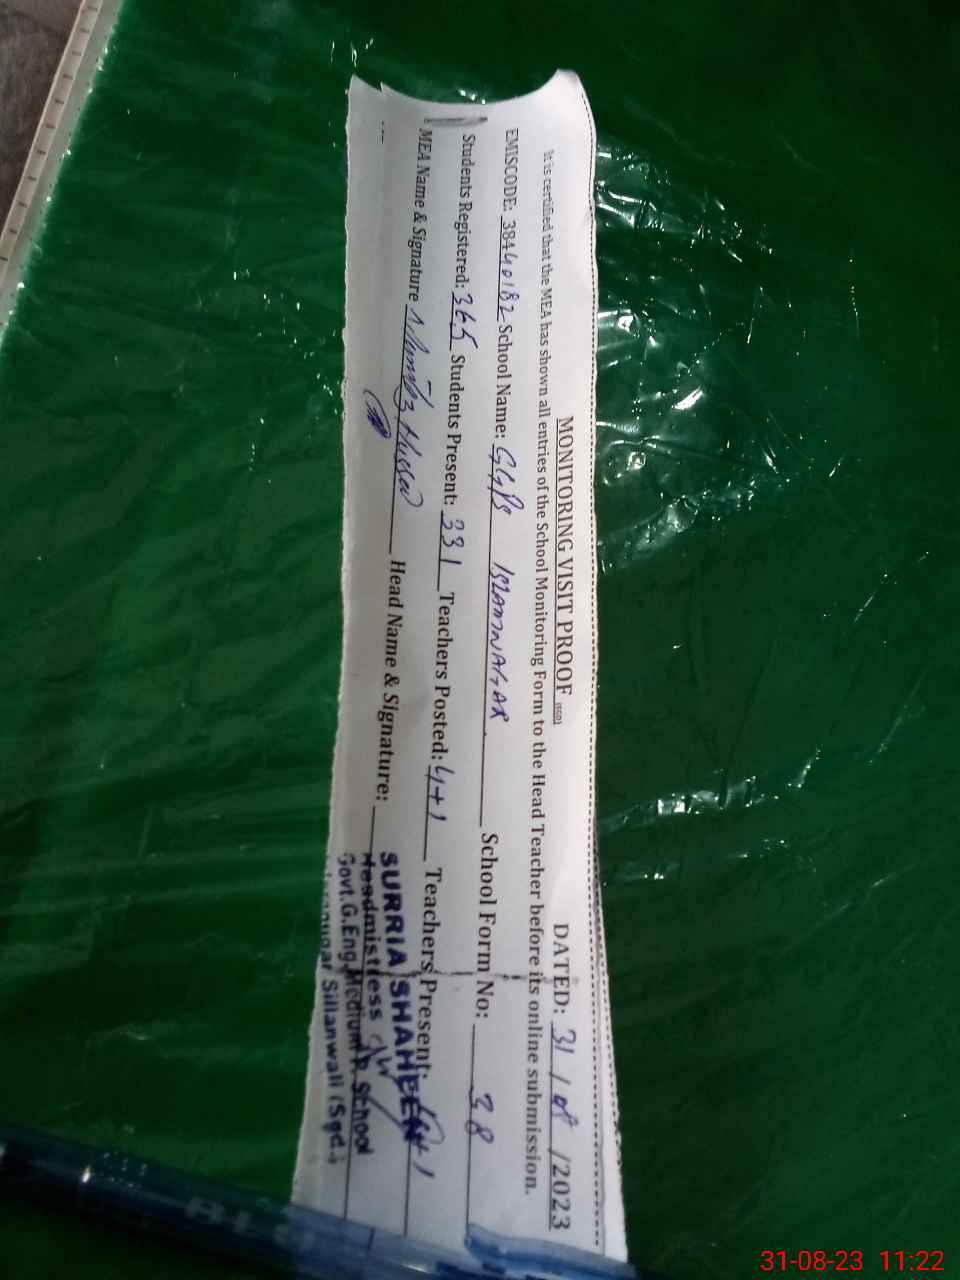 MONITORING VISIT PROOF (SGD) DATED: 31 / 08 /2023
It is certified that the MEA has shown all entries of the School Monitoring Form to the Head Teacher before its online submission.
EMISCODE: 38440182 School Name: GGPS ISLAMNAGAR School Form No: 38
Students Registered: 365 Students Present: 331 Teachers Posted: 4+1 Teachers Present: 4+1
MEA Name & Signature Head Name & Signature:
SURRIA SHAHEEN
Headmistress
Govt.G.Eng.Medium P. School
Islamnagar Sillanwali (Sgd.)
31-08-23 11:22